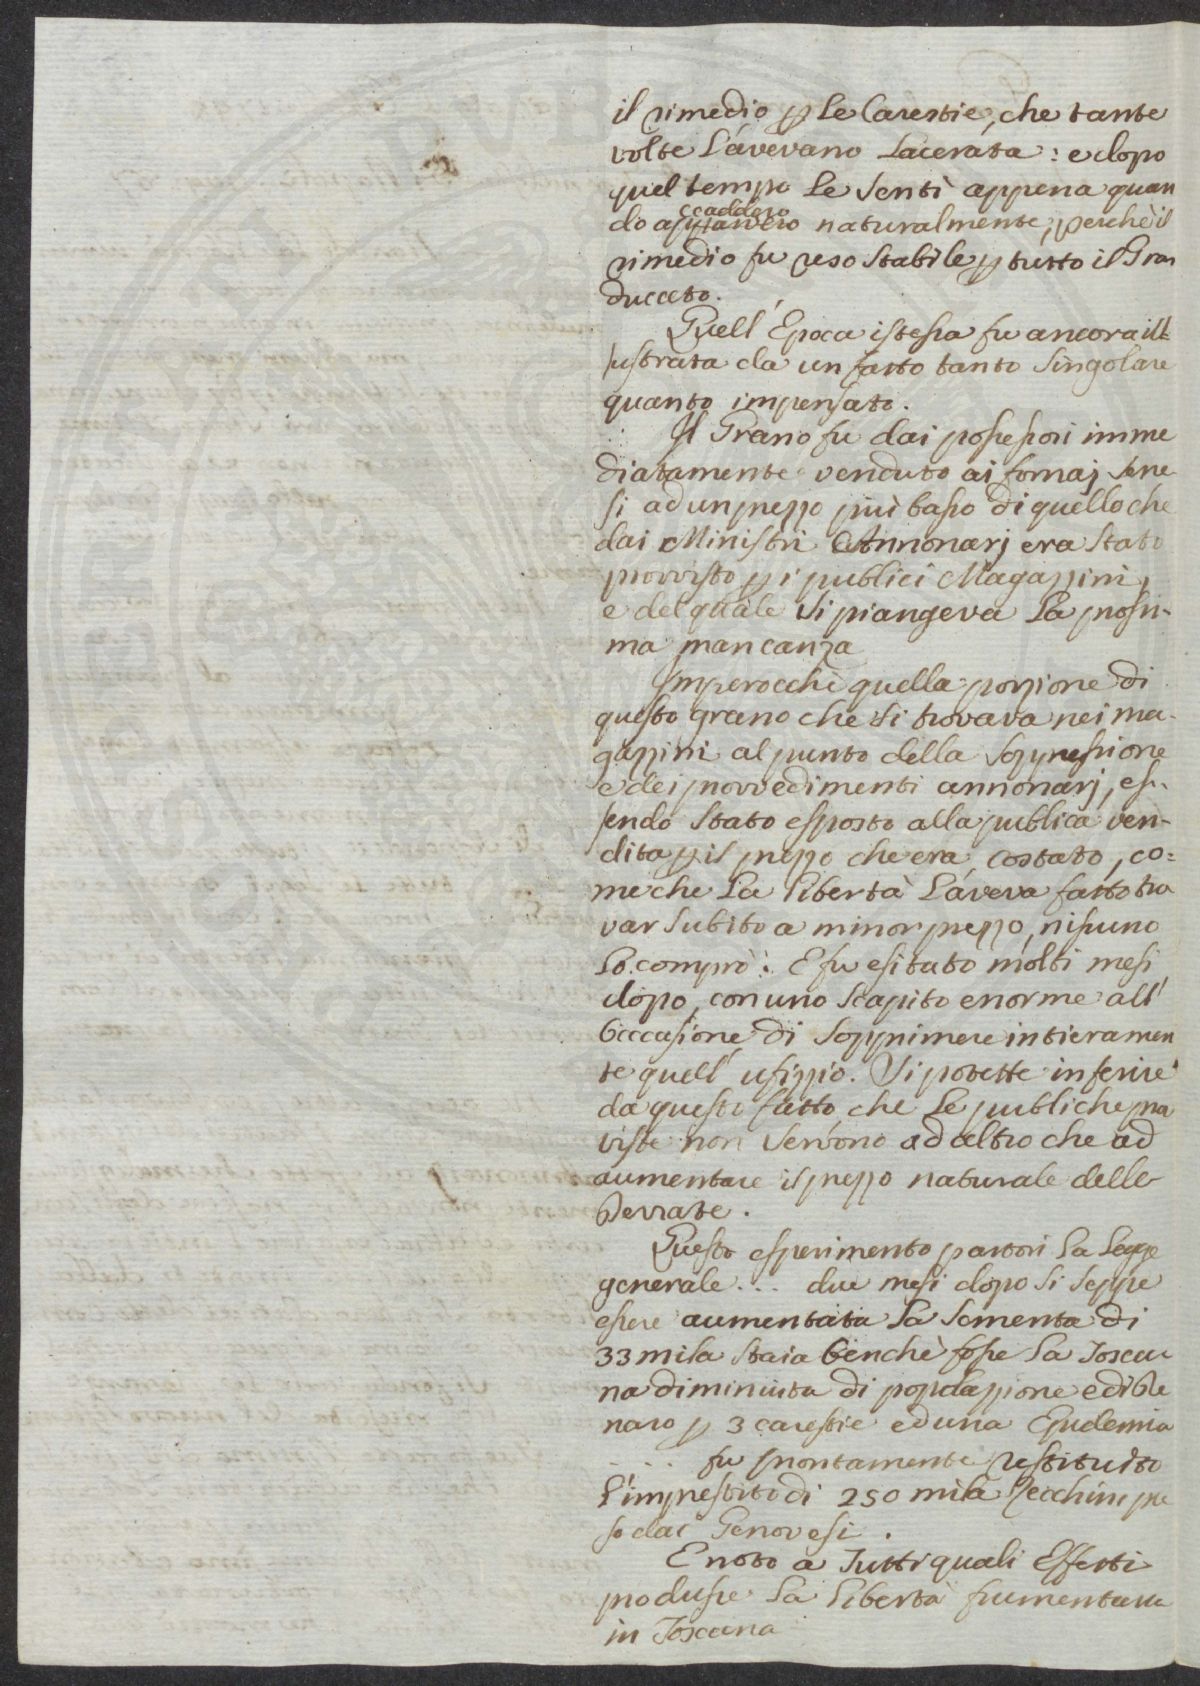 il rimedio p le Carestie, che tante
volte l'avevano lacerata: e dopo
quel tempo le sentì appena quan
do accaddero naturalmente, perchè il
rimedio fu reso stabile p tutto il Gran
ducato.
Quell'Epoca istessa fu ancora ill=
lustrata da un fatto tanto singolare
quanto impensato.
Il Grano fu dai possessori imme
diatamente venduto ai fornaj Sene
si ad un prezzo più basso di quello che
dai Ministri Annonarj era stato
provvisto p i publici Magazzini,
e del quale si piangeva la prossi-
ma mancanza
Imperocchè quella porzione di
questo grano che si trovava nei ma-
gazzini al punto della soppressione
e dei provvedimenti annonarj, es-
sendo stato esposto alla publica ven-
dita p il prezzo che era costato, co=
me che la libertà l'aveva fatto tro
var subito a minor prezzo, nissuno
lo comprò: E fu esitato molti mesi
dopo, con uno scapito enorme all'
occasione di sopprimere intieramen
te quell'ufizzio. Si potette inferire
da questo fatto, che le publiche pro
viste non servono ad altro che ad
aumentare il prezzo naturale delle
Derrate.
Questo esperimento partorì la legge
generale... due mesi dopo si seppe
essere aumentata la sementa di
33 mila staia benchè fosse la Tosca
na diminuita di popolazzione e di De
naro p 3 carestie ed una Epidemia
.... fu prontamente restituito
l'imprestito di 250 mila Zecchini pre
so dai Genovesi.
E noto a Tutti quali Effetti
produsse la libertà frumentaria
in Toscana